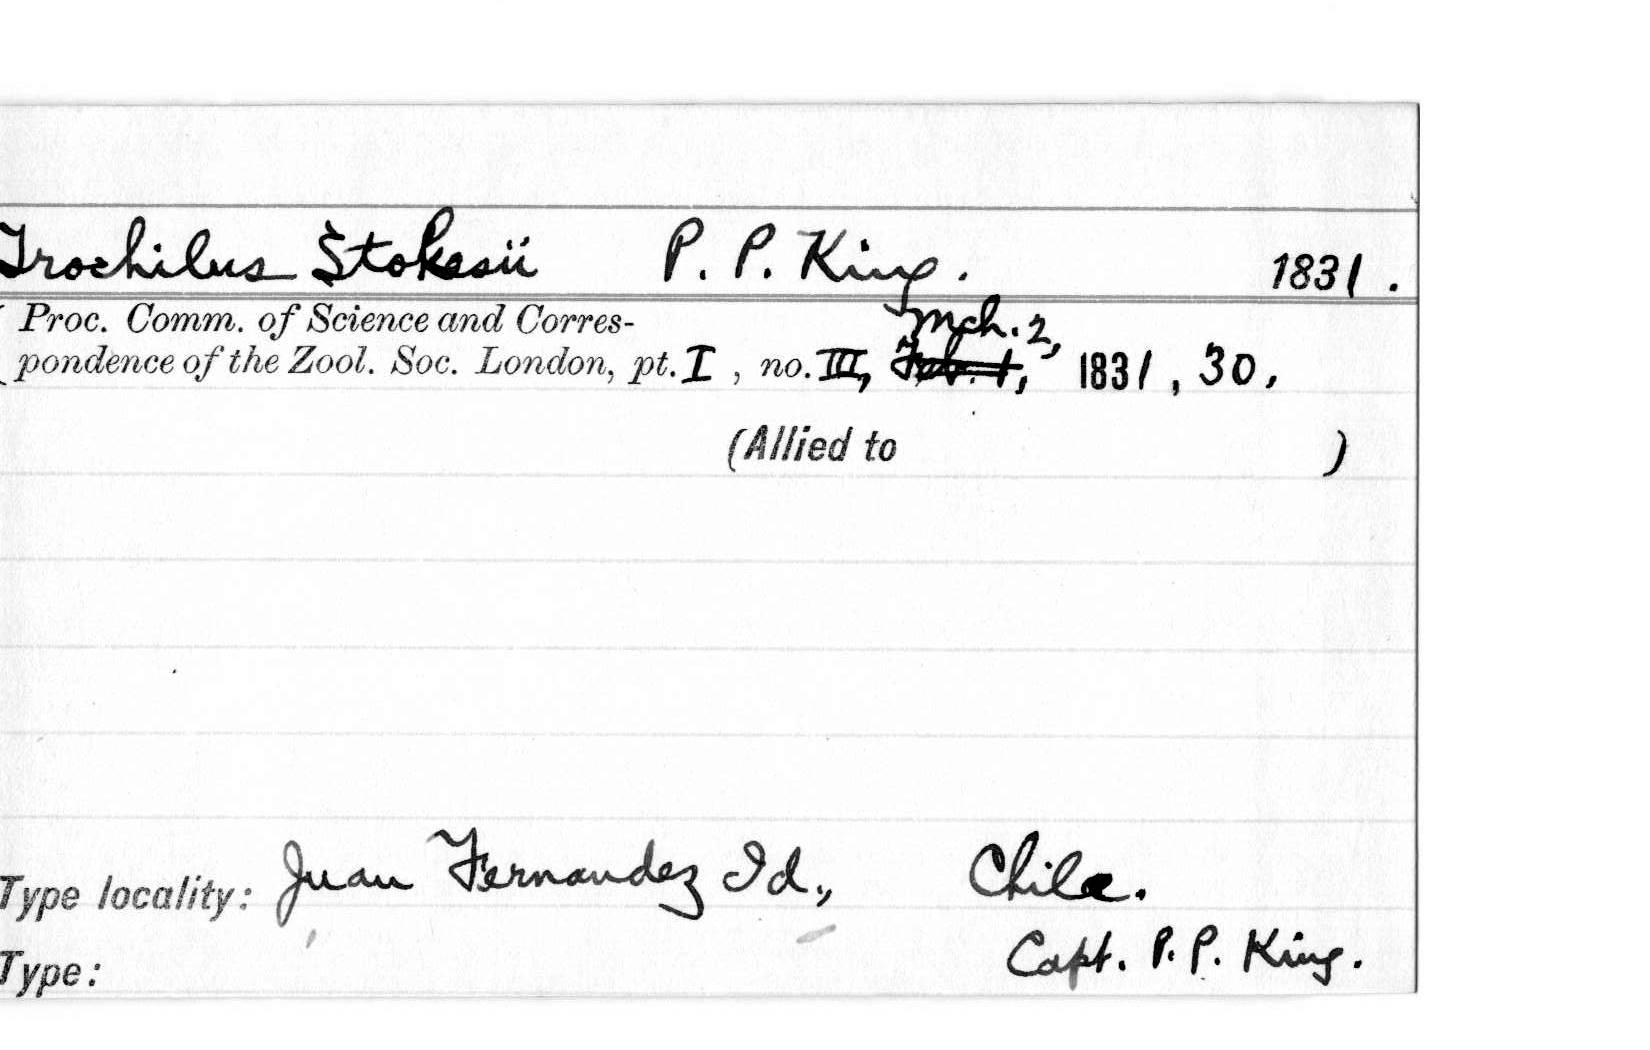 Trochilus Stokesii P. P. King. 1831.
( Proc. Comm. of Science and Corres-
Mch. 2,
pondence of the Zool. Soc. London, pt. I, no. III, Feb. 1, 1831, 30,
(Allied to )
Type locality: Juan Fernandez Id., Chile.
Capt. P. P. King.
Type: